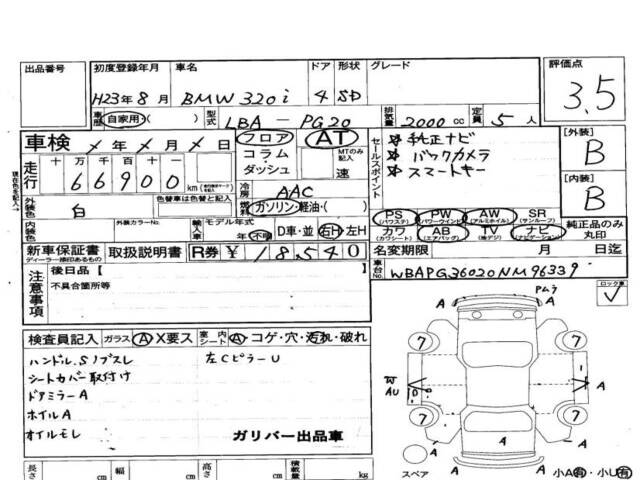 出品番号
初度登録年月 車名 ドア 形状 グレード
評価点
H23年8月 BMW 320i 4 SD
3.5
車歴 自家用・( ) 型式 LBA - PG20 排気量 2000 cc 定員 5 人
車検 年 月 日
フロア コラム ダッシュ
AT
MTのみ記入
速
セールスポイント
純正ナビ
バックカメラ
スマートキー
[外装]
B
[内装]
B
走行
十 万 千 百 十 一
66900 km
冷房 AAC
燃料 ガソリン・軽油・( )
外装色 白
色替車は色替と記入
内装色
外装カラーNo.
輸入車 モデル年式 年 不明 D車・並 右H 左H
PS (パワステ) PW (パワーウインド) AW (アルミホイル) SR (サンルーフ)
カワ (カワシート) AB (エアバッグ) TV (地デジ) ナビ (ナビゲーション)
純正品のみ丸印
新車保証書 取扱説明書 R券 ¥ 18,540
ディーラー捺印あるもの
名変期限 月 日迄
車台No. WBAPG36020NM96339
注意事項
後日品 [ ]
不具合箇所等
検査員記入 ガラス A X要ス 室内 シート A・コゲ・穴・汚れ・破れ
ハンドル.Sノブスレ
左CピラーU
シートカバー取付け
ドアミラーA
ホイルA
オイルモレ
ガリバー出品車
長さ cm 幅 cm 高さ cm 積載量 kg
ロック車
Pムラ
A
7 7
W
AU
A
7 7
A
A
スペア
A
小A有・小U有